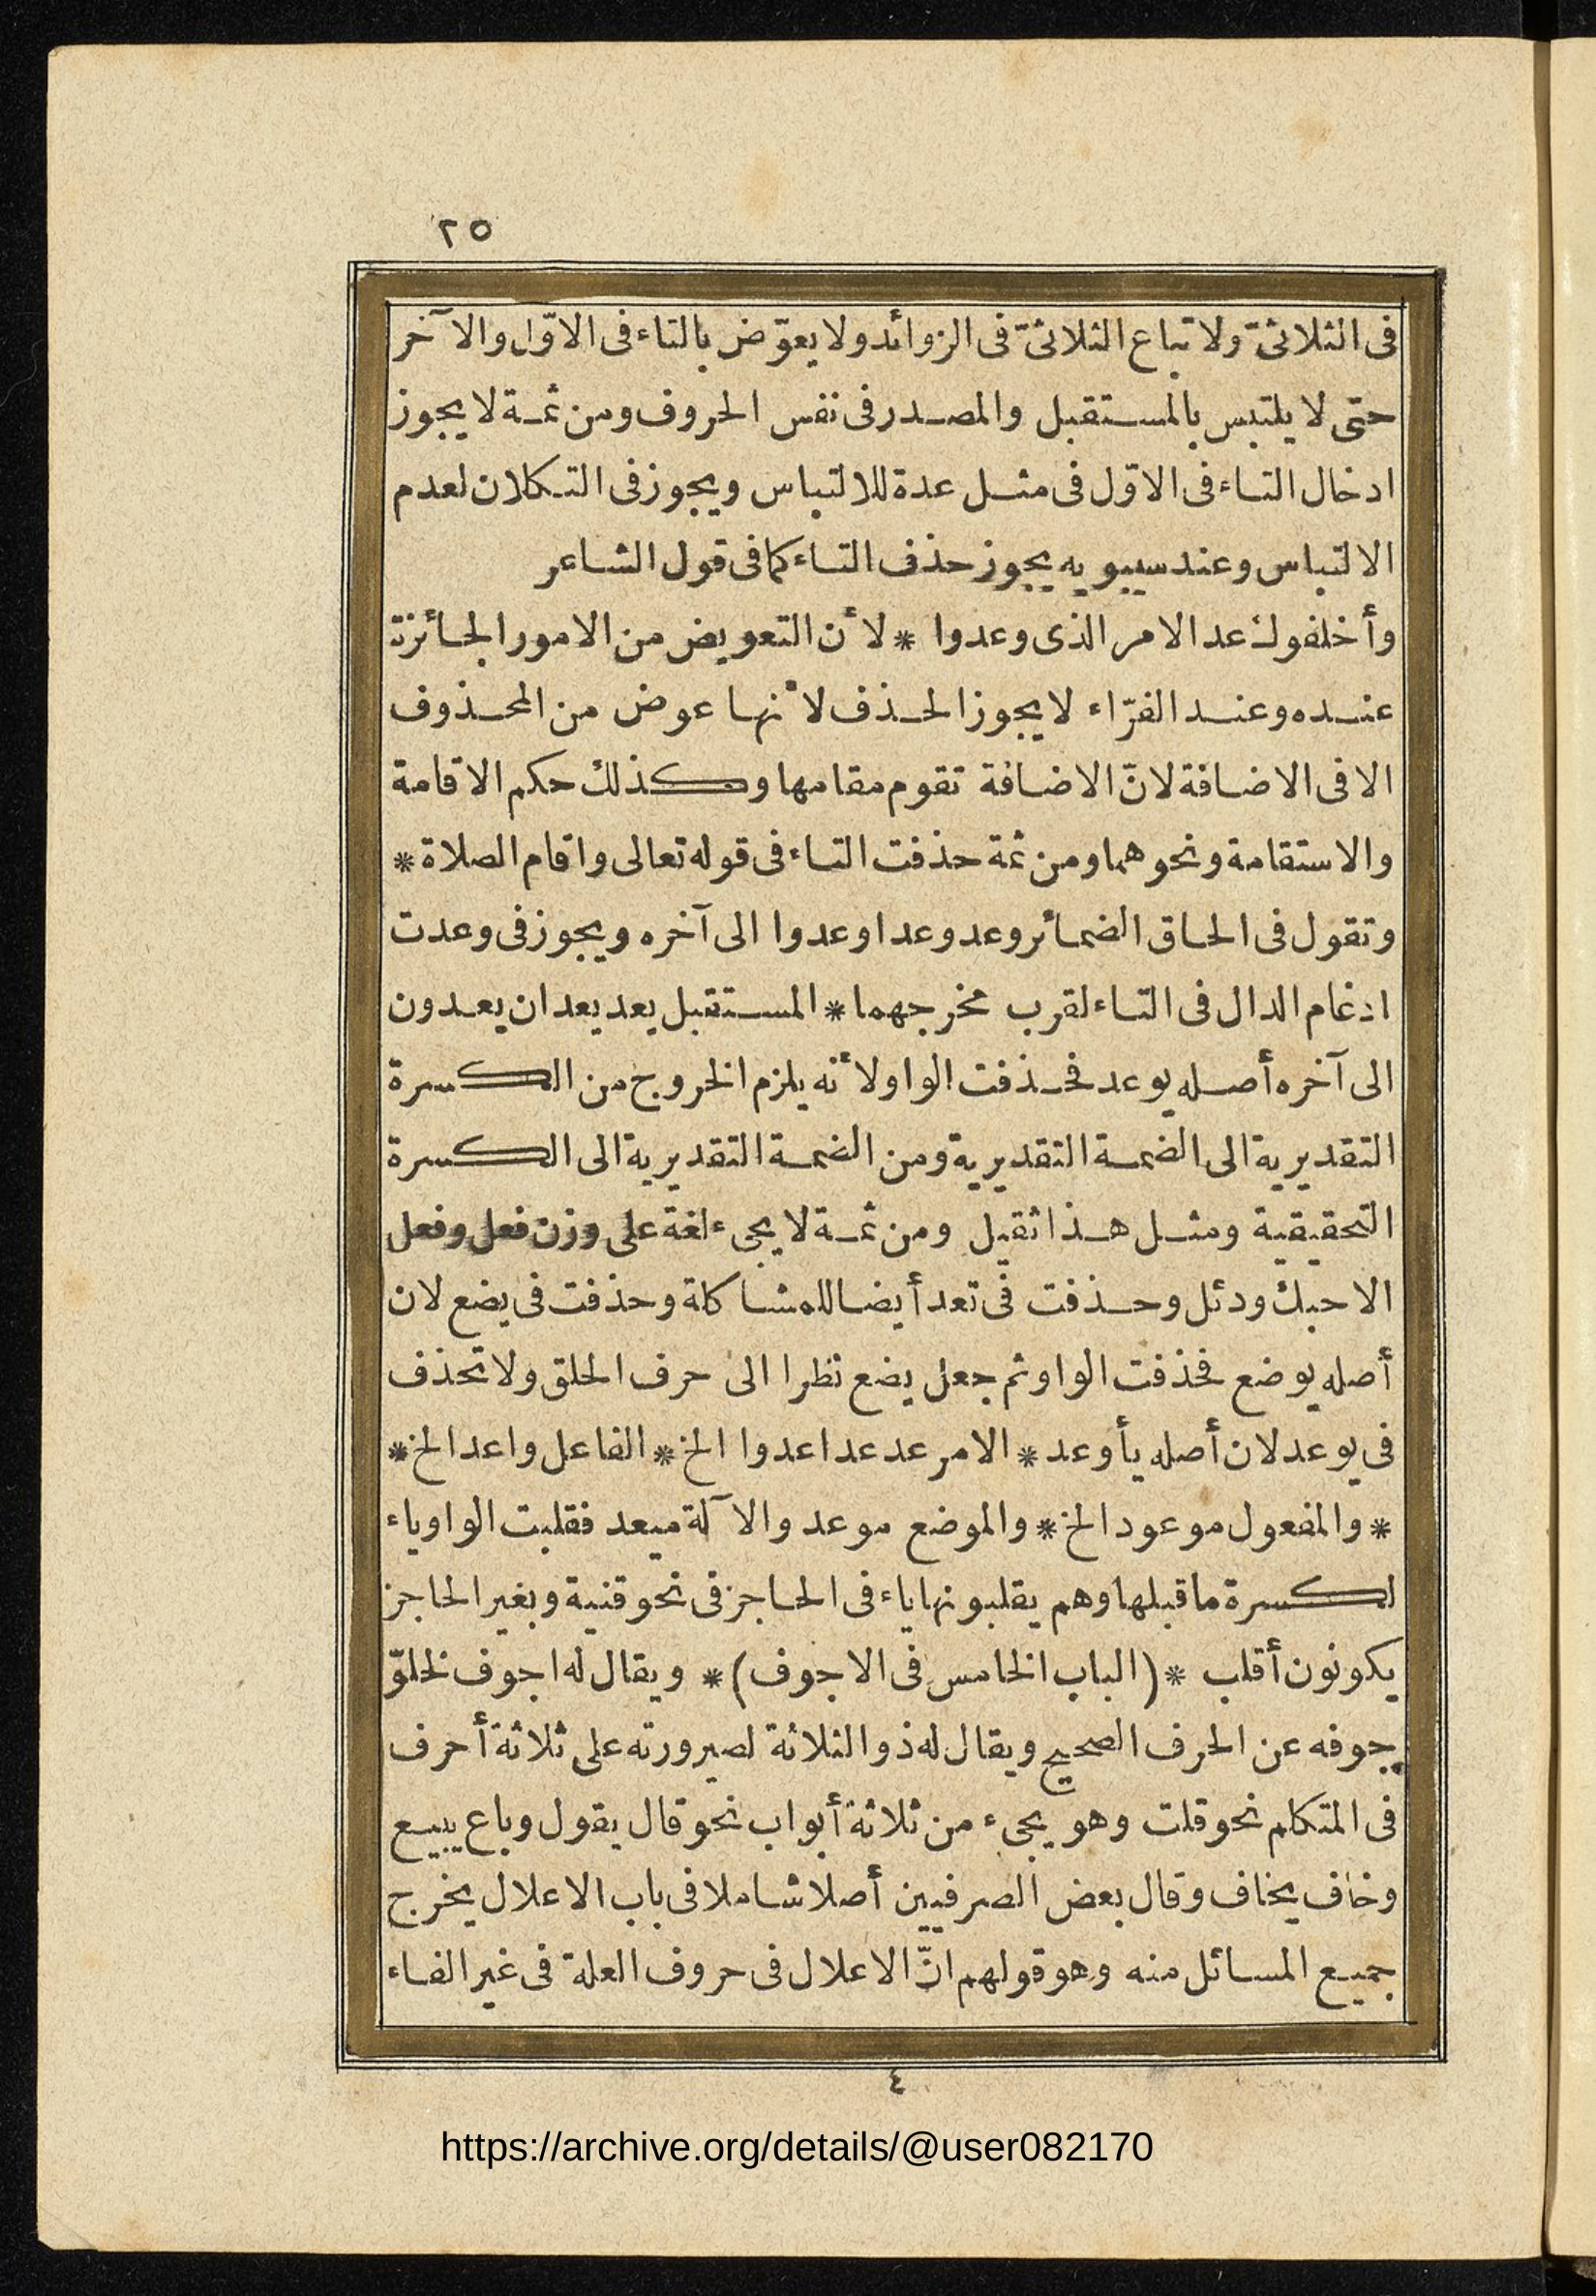 ٢٥
فى الثلاثىّ ولاتباع الثلاثىّ فى الزوائد ولا يعوّض بالتاء فى الاوّل والآخر
حتى لا يلتبس بالمستقبل والمصدر فى نفس الحروف ومن ثمة لا يجوز
ادخال التاء فى الاوّل فى مثل عدة للالتباس ويجوز فى التكلان لعدم
الالتباس وعند سيبويه يجوز حذف التاء كما فى قول الشاعر
وأخلفوك عد الامر الذى وعدوا * لأن التعويض من الامور الجائزة
عنده وعند الفرّاء لا يجوز الحذف لأنها عوض من المحذوف
الا فى الاضافة لانّ الاضافة تقوم مقامها وكذلك حكم الاقامة
والاستقامة ونحوهما ومن ثمة حذفت التاء فى قوله تعالى واقام الصلاة *
وتقول فى الحاق الضمائر وعد وعدا وعدوا الى آخره ويجوز فى وعدت
ادغام الدال فى التاء لقرب مخرجهما * المستقبل يعد يعدان يعدون
الى آخره أصله يوعد فحذفت الواو لأنه يلزم الخروج من الكسرة
التقديرية الى الضمة التقديرية ومن الضمة التقديرية الى الكسرة
التحقيقية ومثل هذا ثقيل ومن ثمة لا يجىء لغة على وزن فعل وفعل
الا حبك ودئل وحذفت فى تعد أيضا للمشاكلة وحذفت فى يضع لان
أصله يوضع فحذفت الواو ثم جعل يضع نظرا الى حرف الحلق ولا تحذف
فى يوعد لان أصله يأوعد * الامر عد عدا عدوا الخ * الفاعل واعد الخ *
* والمفعول موعود الخ * والموضع موعد والآلة ميعد فقلبت الواو ياء
لكسرة ما قبلها وهم يقلبونها ياء فى الحاجز فى نحو قنية وبغير الحاجز
يكونون أقلب * (الباب الخامس فى الاجوف) * ويقال له اجوف لخلوّ
جوفه عن الحرف الصحيح ويقال له ذو الثلاثة لصيرورته على ثلاثة أحرف
فى المتكلم نحو قلت وهو يجىء من ثلاثة أبواب نحو قال يقول وباع يبيع
وخاف يخاف وقال بعض الصرفيين أصلا شاملا فى باب الاعلال يخرج
جميع المسائل منه وهو قولهم انّ الاعلال فى حروف العلة فى غير الفاء
٤
https://archive.org/details/@user082170